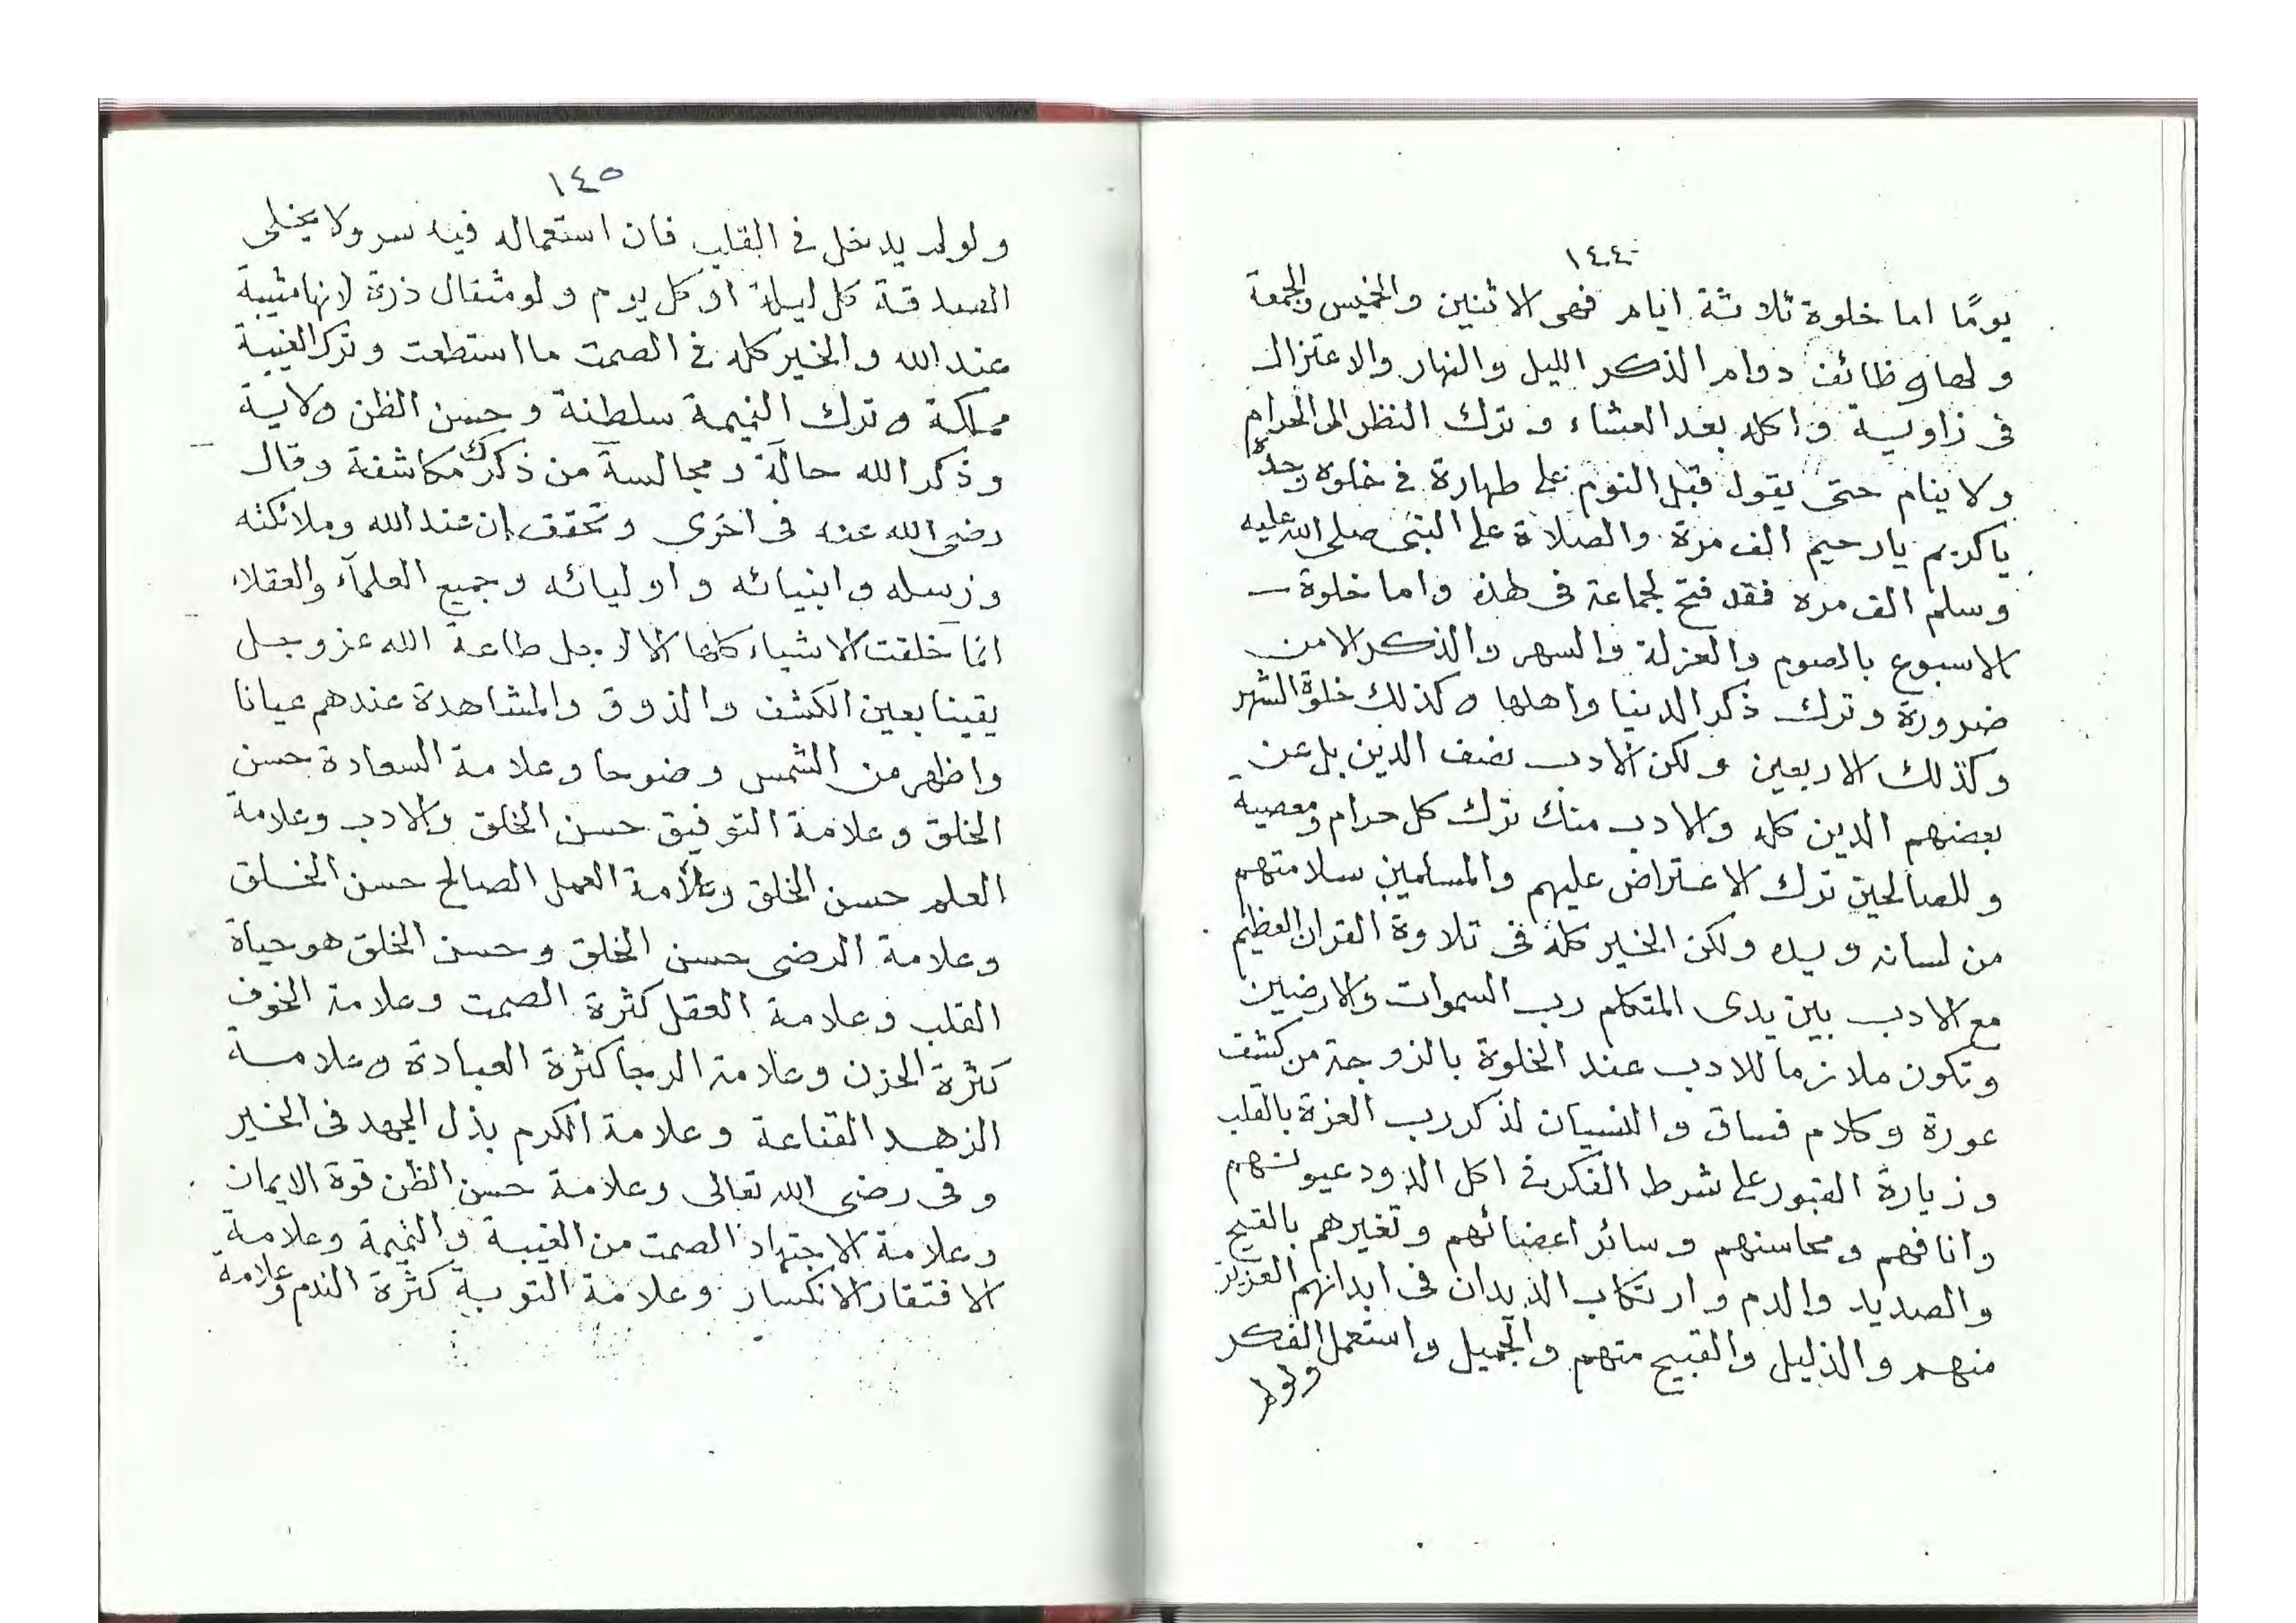 ١٤٤
يومًا اما خلوة ثلاثة ايام فهى الاثنين والخميس والجمعة
ولها وظائف دوام الذكر الليل والنهار والاعتزال
فى زاوية واكله بعد العشاء وترك النظر الى الحرام
ولا ينام حتى يقول قبل النوم على طهارة فى خلوه وحده
ياكريم يارحيم الف مرة والصلاة على النبى صلى الله عليه
وسلم الف مره فقد فتح لجماعة فى هذه واما خلوة
الاسبوع بالصوم والعزلة والسهر والذكر الا من
ضرورة وترك ذكر الدنيا واهلها وكذلك خلوة الشهر
وكذلك الاربعين ولكن الادب نصف الدين بل عن
بعضهم الدين كله والادب منك ترك كل حرام ومعصية
وللصالحين ترك الاعتراض عليهم والمسلمين سلامتهم
من لسانه ويده ولكن الخير كله فى تلاوة القران العظيم
مع الادب بين يدى المتكلم رب السموات والارضين
وتكون ملازما للادب عند الخلوة بالزوجة من كشف
عورة وكلام فساق والنسيان لذكر رب العزة بالقلب
وزيارة القبور على شرط الفكر فى اكل الدود عيونهم
وانافهم ومحاسنهم وسائر اعضائهم وتغيرهم بالقيح
والصديد والدم وارتكاب الديدان فى ابدانهم العزيز
منهم والذليل والقبيح منهم والجميل واستعمل الفكر
ولولم
١٤٥
ولولم يدخل فى القلب فان استعماله فيه سر ولا يخلى
الصدقة كل ليلة او كل يوم ولو مثقال ذرة لانها مثيبة
عند الله والخير كله فى الصمت ما استطعت وترك الغيبة
مملكة وترك النميمة سلطنة وحسن الظن ولاية
وذكر الله حالة ومجالسة من ذكرك مكاشفة وقال
رضى الله عنه فى اخرى وتحقق ان عند الله وملائكته
ورسله وانبيائه واوليائه وجميع العلمآء والعقلاء
انما خلقت الاشياء كلها الا لاجل طاعة الله عز وجل
يقينا بعين الكشف والذوق والمشاهدة عندهم عيانا
واظهر من الشمس وضوحا وعلامة السعادة حسن
الخلق وعلامة التوفيق حسن الخلق والادب وعلامة
العلم حسن الخلق وعلامة العمل الصالح حسن الخلق
وعلامة الرضى حسن الخلق وحسن الخلق هو حياة
القلب وعلامة العقل كثرة الصمت وعلامة الخوف
كثرة الحزن وعلامة الرجا كثرة العبادة وعلامة
الزهد القناعة وعلامة الكرم بذل الجهد فى الخير
وفى رضى الله تعالى وعلامة حسن الظن قوة الايمان
وعلامة الاجتهاد الصمت من الغيبة والنميمة وعلامة
الافتقار الانكسار وعلامة التوبة كثرة الندم وعلامة